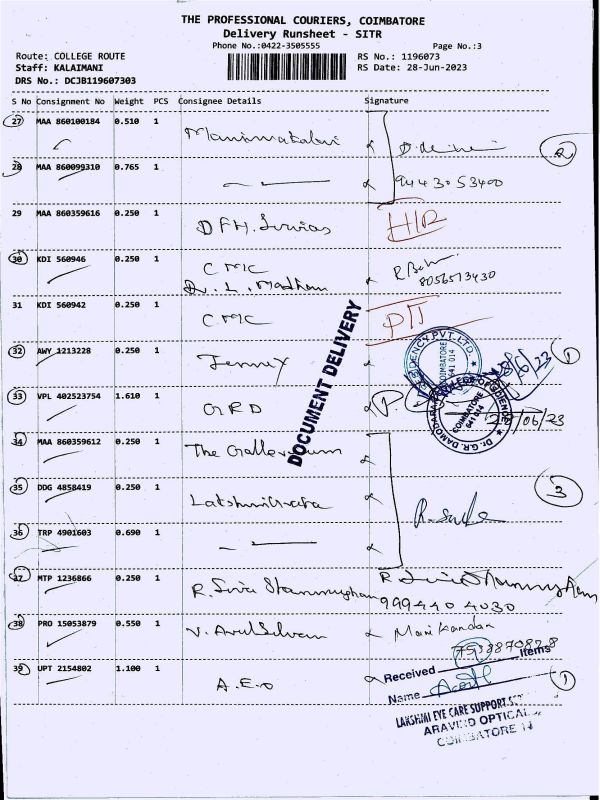 THE PROFESSIONAL COURIERS, COIMBATORE
Delivery Runsheet - SITR
Phone No.:0422-3505555 Page No.:3
Route: COLLEGE ROUTE RS No.: 1196073
Staff: KALAIMANI RS Date: 28-Jun-2023
DRS No.: DCJB119607303
S No Consignment No Weight PCS Consignee Details Signature
27 MAA 860100184 0.510 1
28 MAA 860099310 0.765 1 9443053400
2
29 MAA 860359616 0.250 1
30 KDI 560946 0.250 1 CMC
Dr. L. Madhan 8056513430
31 KDI 560942 0.250 1 CMC
32 AWY 1213228 0.250 1 Jenney
1
33 VPL 402523754 1.610 1 GRD
28/06/23
34 MAA 860359612 0.250 1 The
35 DDG 4858419 0.250 1
3
36 TRP 4901603 0.690 1
37 MTP 1236866 0.250 1 R. Siva Shanmugham R. Siva Shanmugham
9994404030
38 PRO 15053879 0.550 1 V. Arul Selvan Manikandan
39 UPT 2154802 1.100 1 A.E.O
1
DOCUMENT DELIVERY
COIMBATORE
641 014
COIMBATORE
641 014
Received Items
Name
LAKSHMI EYE CARE SUPPORT
ARAVIND OPTICAL
COIMBATORE 14